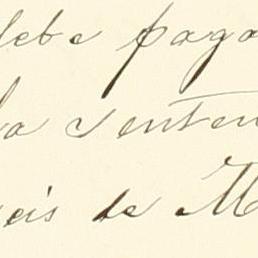 debe paga
la senten
seis de M